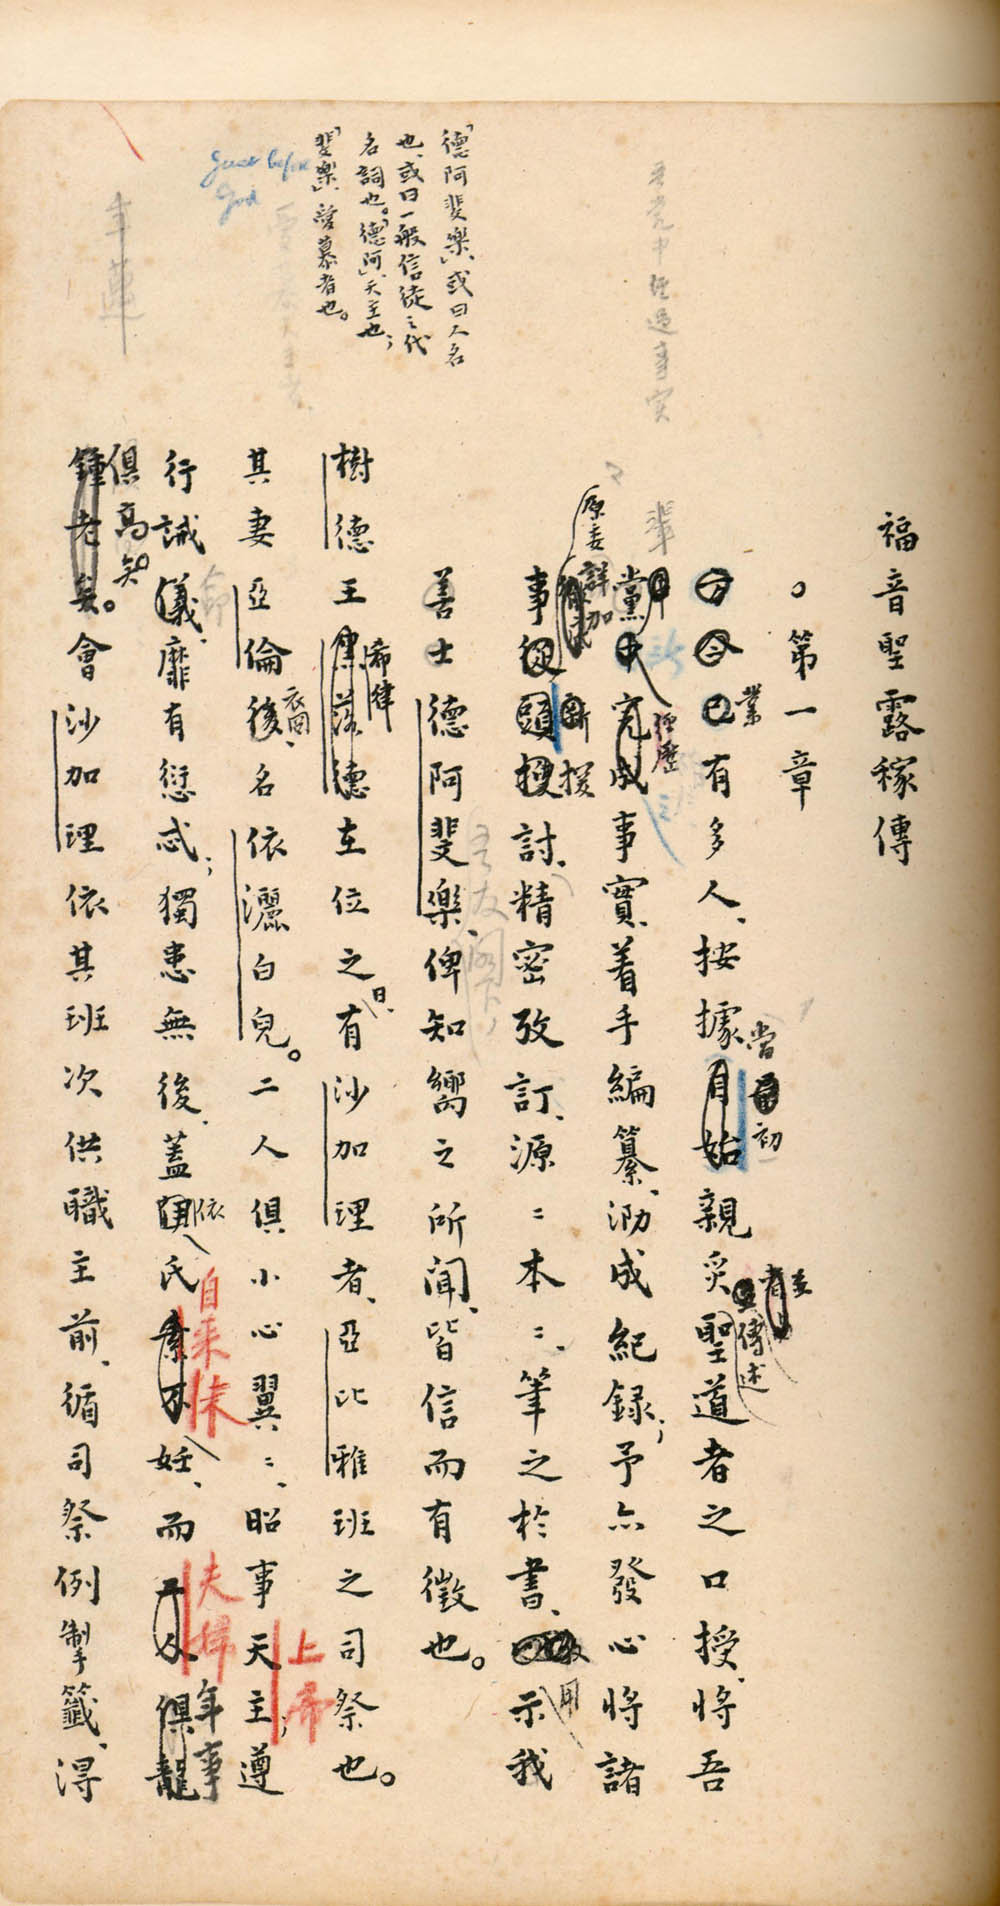 福音聖露稼傳
○第一章
方今已有多人、按據自始親炙聖道者之口授、將吾
業
當初
者
傳述
黨中完成事實、着手編纂、泐成紀録；予亦發心將諸
經歷
事從頭搜討、精密攷訂、源〻本〻、筆之於書、以示我
原委詳加
援
用
善士德阿斐樂、俾知嚮之所聞、皆信而有徵也。
樹德王 德在位之有沙加理者、亞比雅班之司祭也。
希律
日、
其妻亞倫後名依灑白兒。二人俱小心翼〻、昭事天主；遵
衣冏、
上帝
行誡儀、靡有愆忒；獨患無後、蓋 氏素不妊、而二人俱龍
命
依
自来未
夫婦
年事
鍾老矣。會沙加理依其班次供職主前、循司祭例掣籤、得
俱高矣。
吾黨中經過事實
輩
吾友閣下，
「德阿斐樂」、或曰人名
也、或曰一般信徒之代
名詞也。「德阿」、天主也；
「斐樂」、愛慕者也。
Just before
God